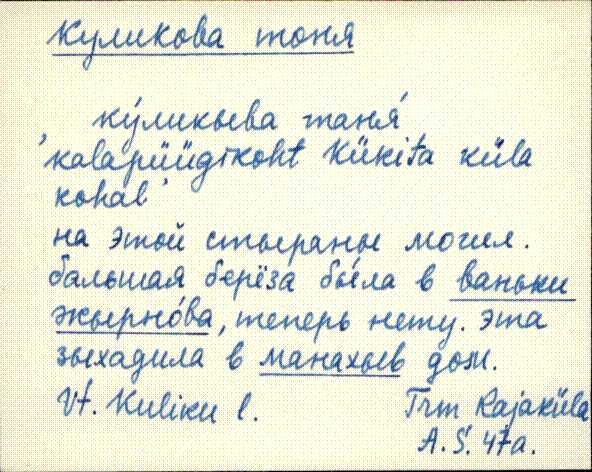 Куликова тоня
ку́ликыева таня́
'kalapüügikoht Kükita küla
kohal'
на этой стыераны могил.
бальшая берёза бы́ла в ваньки
жыерно́ва, теперь нету. эта
зыхадила в манахыев дом.
Vt. Kuliku l.
Trm Rajaküla
A. S. 47a.